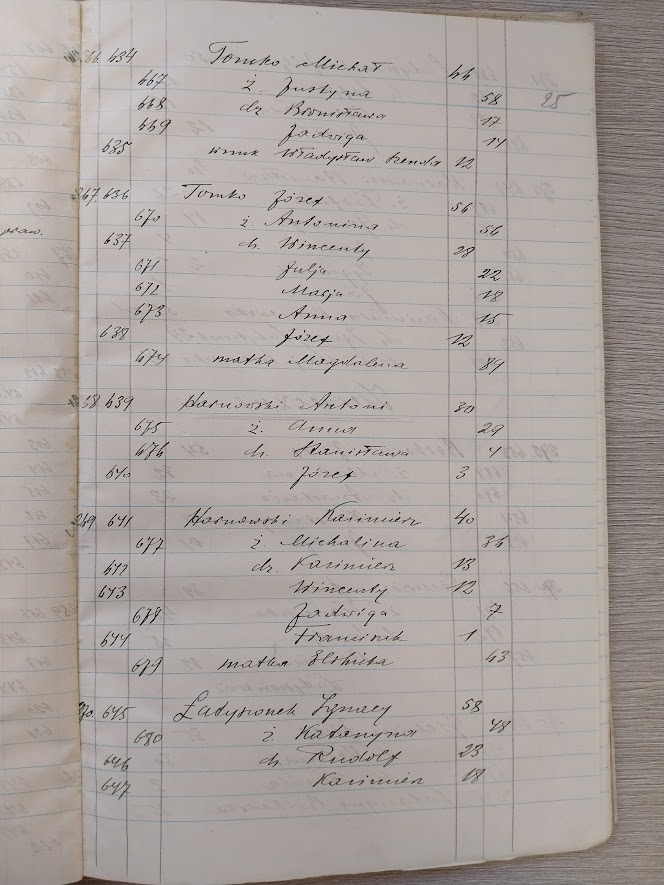 266. 634 Tomko Michał 44
667 ż. Justyna 58
668 dz Bronisława 17
669 Jadwiga 14
635 wnuk Władysław 12
25
267. 636 Tomko Józef 56
670 ż Antonina 56
637 ch. Wincenty 28
671 Julja 22
672 Marja 18
673 Anna 15
638 Józef 12
674 matka Magdalena 89
68 639 Harnowski Antoni 30
675 ż. Anna 29
676 ch. Stanisława 4
640 Józef 3
269 641 Harnowski Kazimierz 40
677 ż Michalina 36
642 dz. Kazimierz 13
643 Wincenty 12
678 Jadwiga 7
644 Franciszek 1
679 matka Elżbieta 63
270. 645 Ladyżonek Ignacy 58
680 ż Katarzyna 48
646 ch Rudolf 23
647 Kazimierz 18